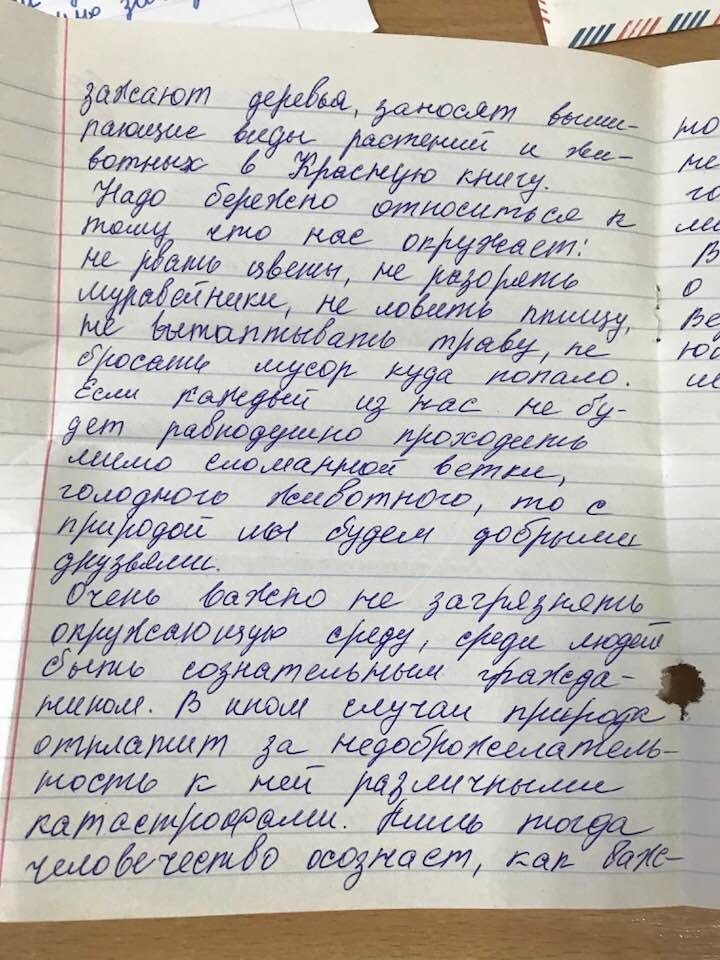 зажают деревья, заносят выми-
рающие виды растений и жи-
вотных в Красную книгу.
Надо бережно относиться к
тому что нас окружает:
не рвать цветы, не разорять
муравейники, не ловить птицу,
не вытаптывать траву, не
бросать мусор куда попало.
Если каждый из нас не бу-
дет равнодушно проходить
мимо сломанной ветки,
голодного животного, то с
природой мы будем добрыми
друзьями.
Очень важно не загрязнять
окружающую среду, среди людей
быть сознательным гражда-
нином. В ином случаи природа
отплатит за недоброжелатель-
ность к ней различными
катастрофами. Лишь тогда
человечество осознает, как важ-